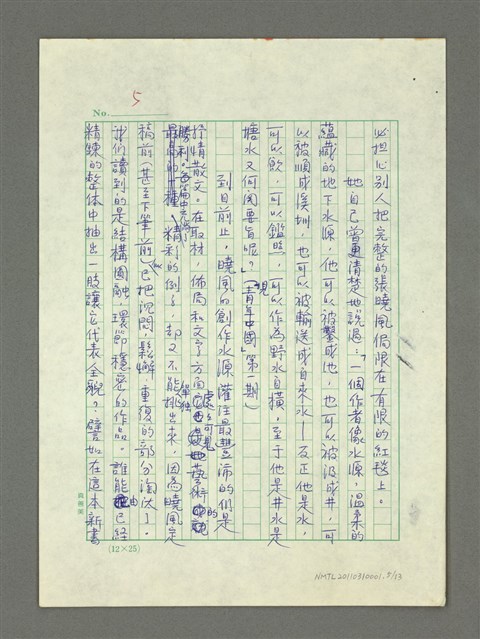 No.
5
必担心別人把完整的張曉風侷限在有限的紅毯上。
她自己曾更清楚地說過：一個作者像水源，溫柔的
蘊藏的地下水源，他可以被鑿成池，也可以被汲成井，可
以被順成溪圳，也可以被輸送成自來水——反正他是水，
可以飲，可以鑑照，可以作為野水自橫，至于他是井水是
塘水又何關要旨呢？（「青年中國」創 第一期）
到目前止，曉風的創作水源灌注最豐沛的們是
抒情散文。在取材，佈局和文字方面處處可見藝術的
勝利。每篇中充滿了
最高的十種精彩的例子，却又不能單独挑出來，因為曉風定
稿前（甚至下筆前）已把沉悶、鬆懈、重複的部分淘汰了。
我们讀到的是結構圓融，環節穩密的作品。誰能由已經
精鍊的整体中抽出一肢讓它代表全貌。譬如在這本新書
(12×25)
NMTL20110310001.5/13